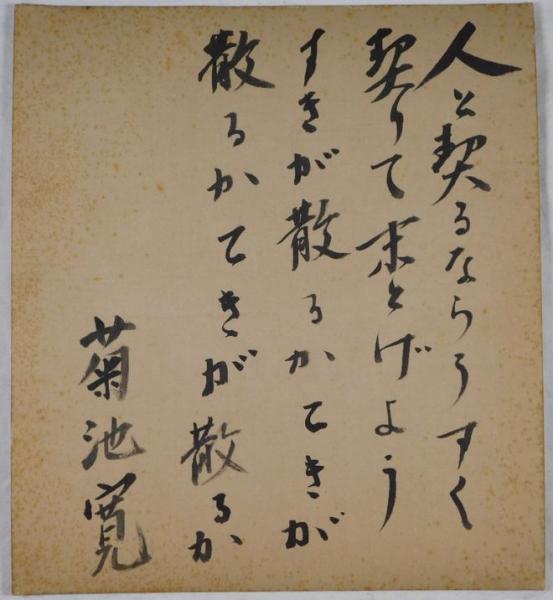 人と契るならうすく
契りて末とげよう
すきが散るかこきが
散るかこきが散るか
菊池寛